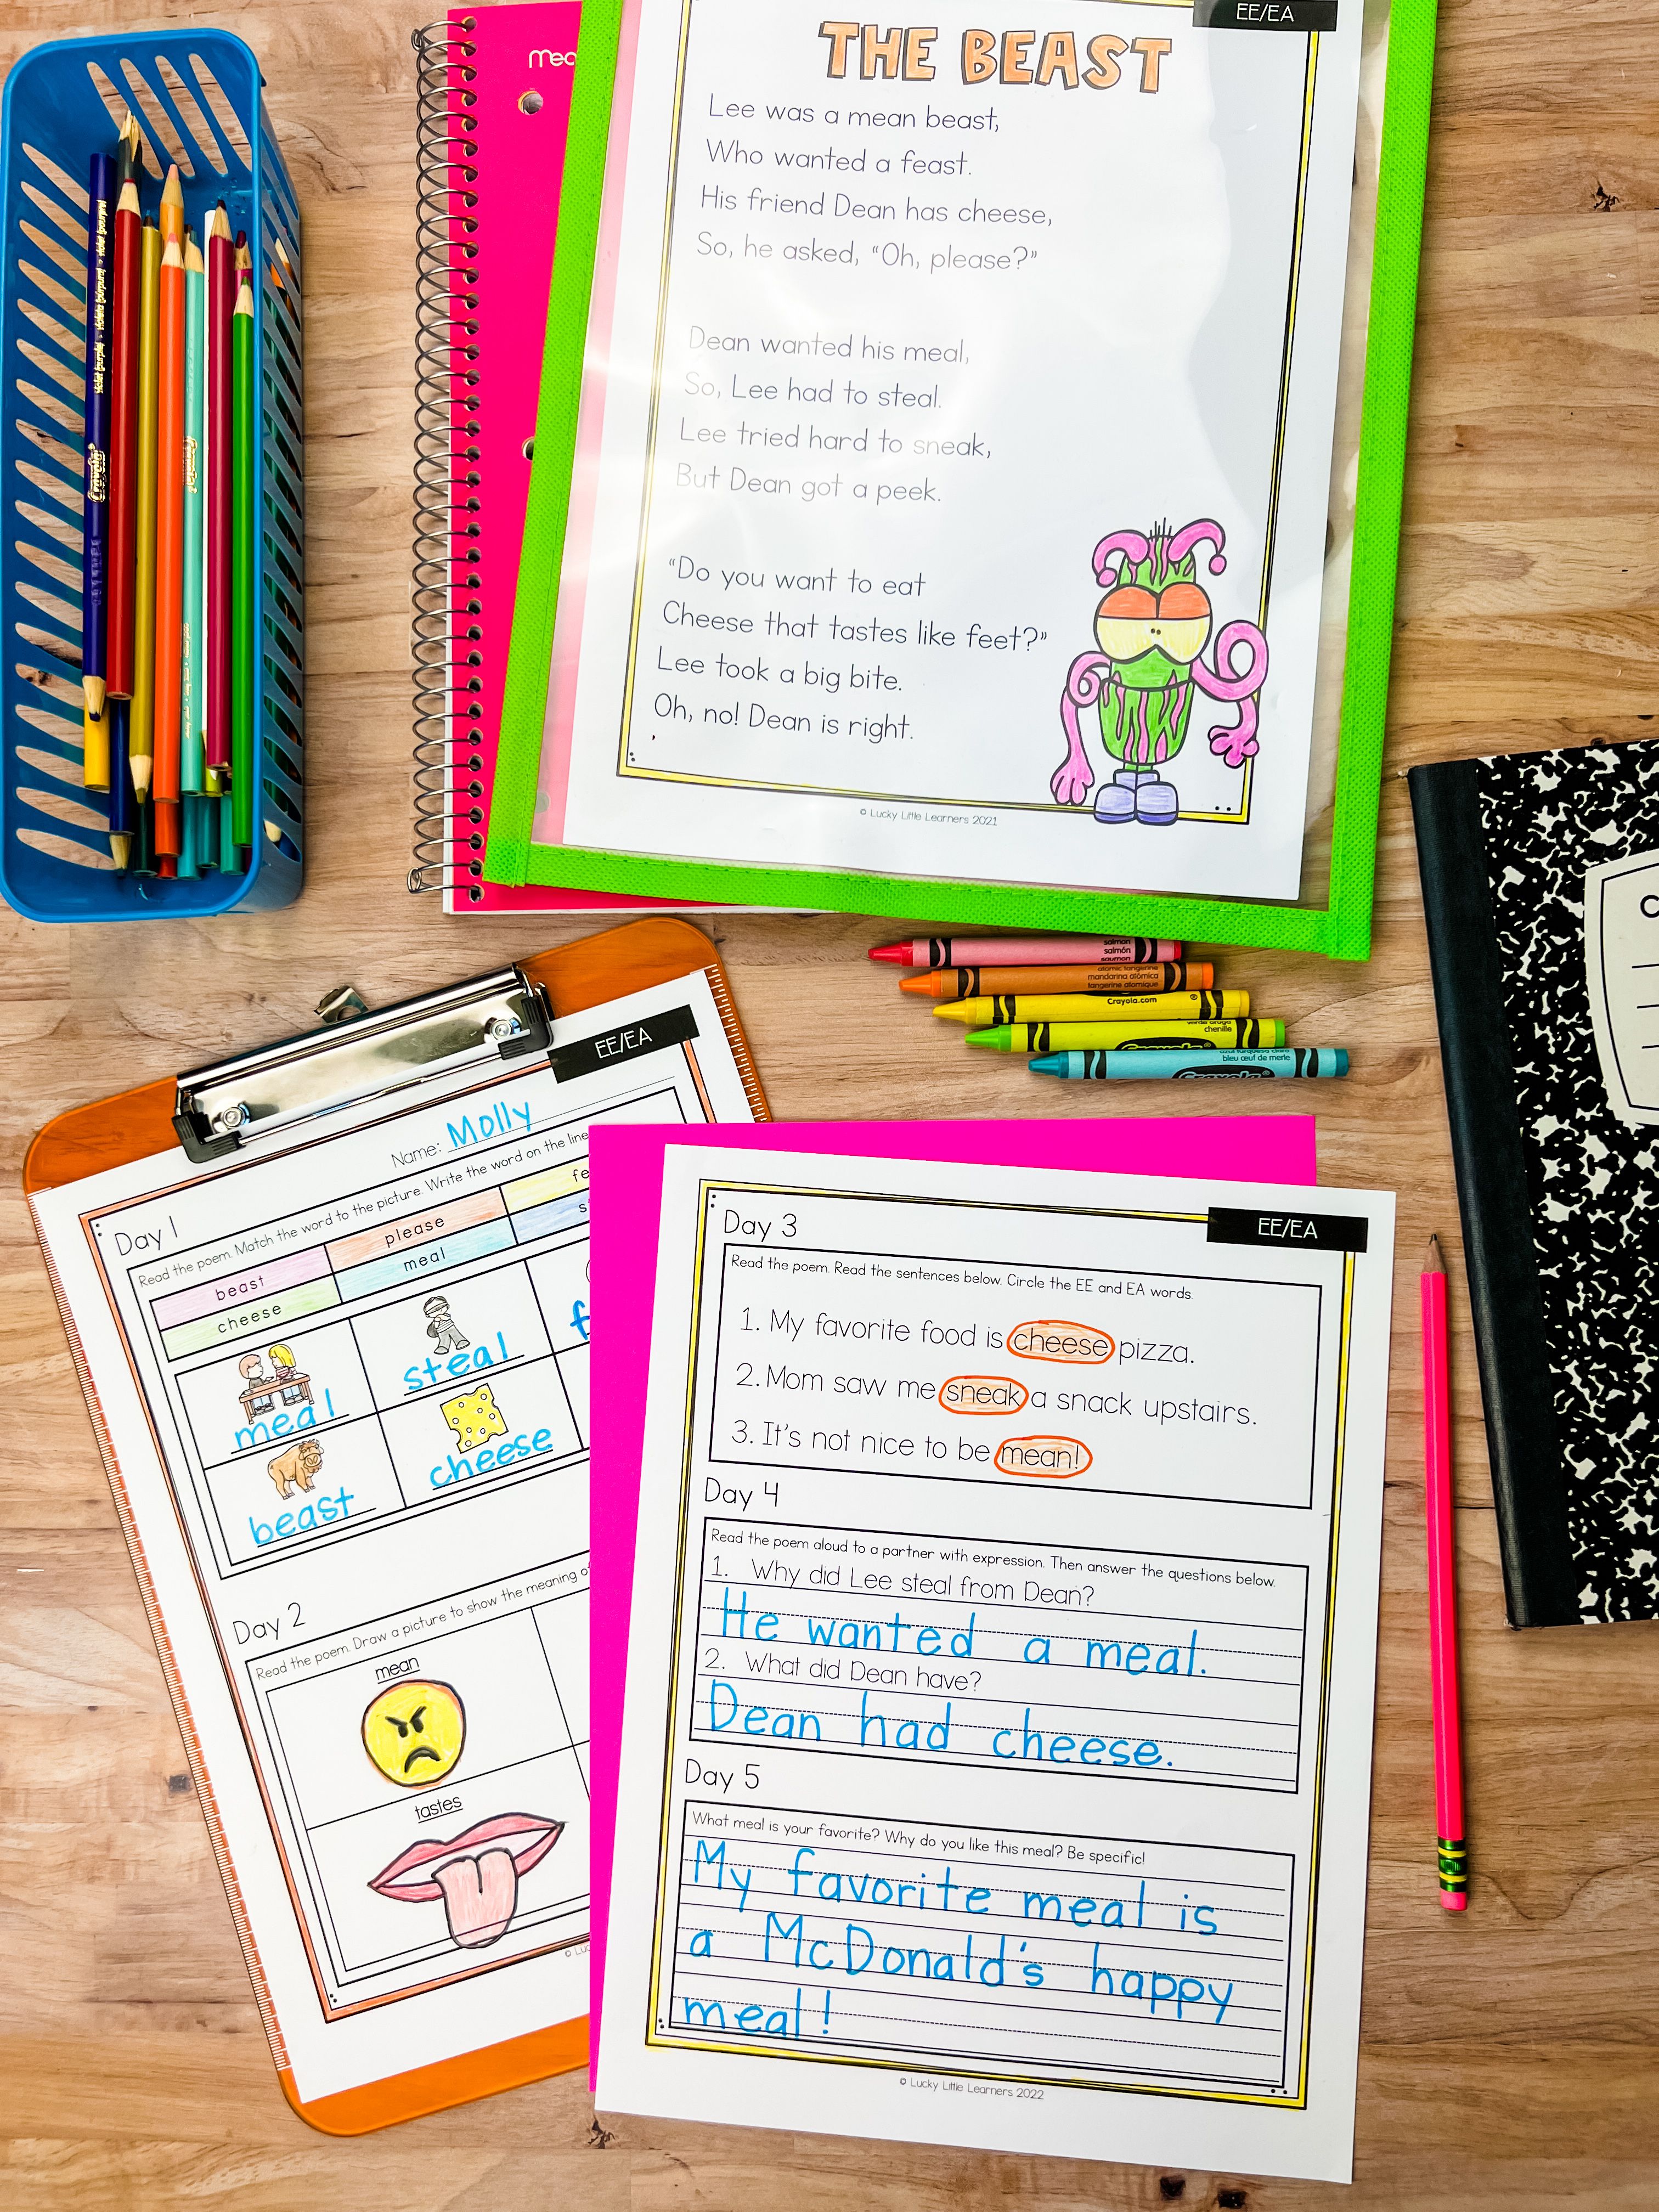 EE/EA
THE BEAST
Lee was a mean beast,
Who wanted a feast.
His friend Dean has cheese,
So, he asked, “Oh, please?”
Dean wanted his meal,
So, Lee had to steal.
Lee tried hard to sneak,
But Dean got a peek.
“Do you want to eat
Cheese that tastes like feet?”
Lee took a big bite.
Oh, no! Dean is right.
© Lucky Little Learners 2021
Crayola
salmon
salmón
saumon
atomic tangerine
mandarina atómica
tangerine atomique
Crayola.com
chenille
Crayola
bleu œuf de merle
Crayola
EE/EA
Name: Molly
Day 1
Read the poem. Match the word to the picture. Write the word on the line
beast
please
cheese
meal
meal
steal
beast
cheese
Day 2
Read the poem. Draw a picture to show the meaning
mean
tastes
EE/EA
Day 3
Read the poem. Read the sentences below. Circle the EE and EA words.
1. My favorite food is cheese pizza.
2. Mom saw me sneak a snack upstairs.
3. It's not nice to be mean!
Day 4
Read the poem aloud to a partner with expression. Then answer the questions below.
1. Why did Lee steal from Dean?
He wanted a meal.
2. What did Dean have?
Dean had cheese.
Day 5
What meal is your favorite? Why do you like this meal? Be specific!
My favorite meal is
a McDonald's happy
meal!
© Lucky Little Learners 2022